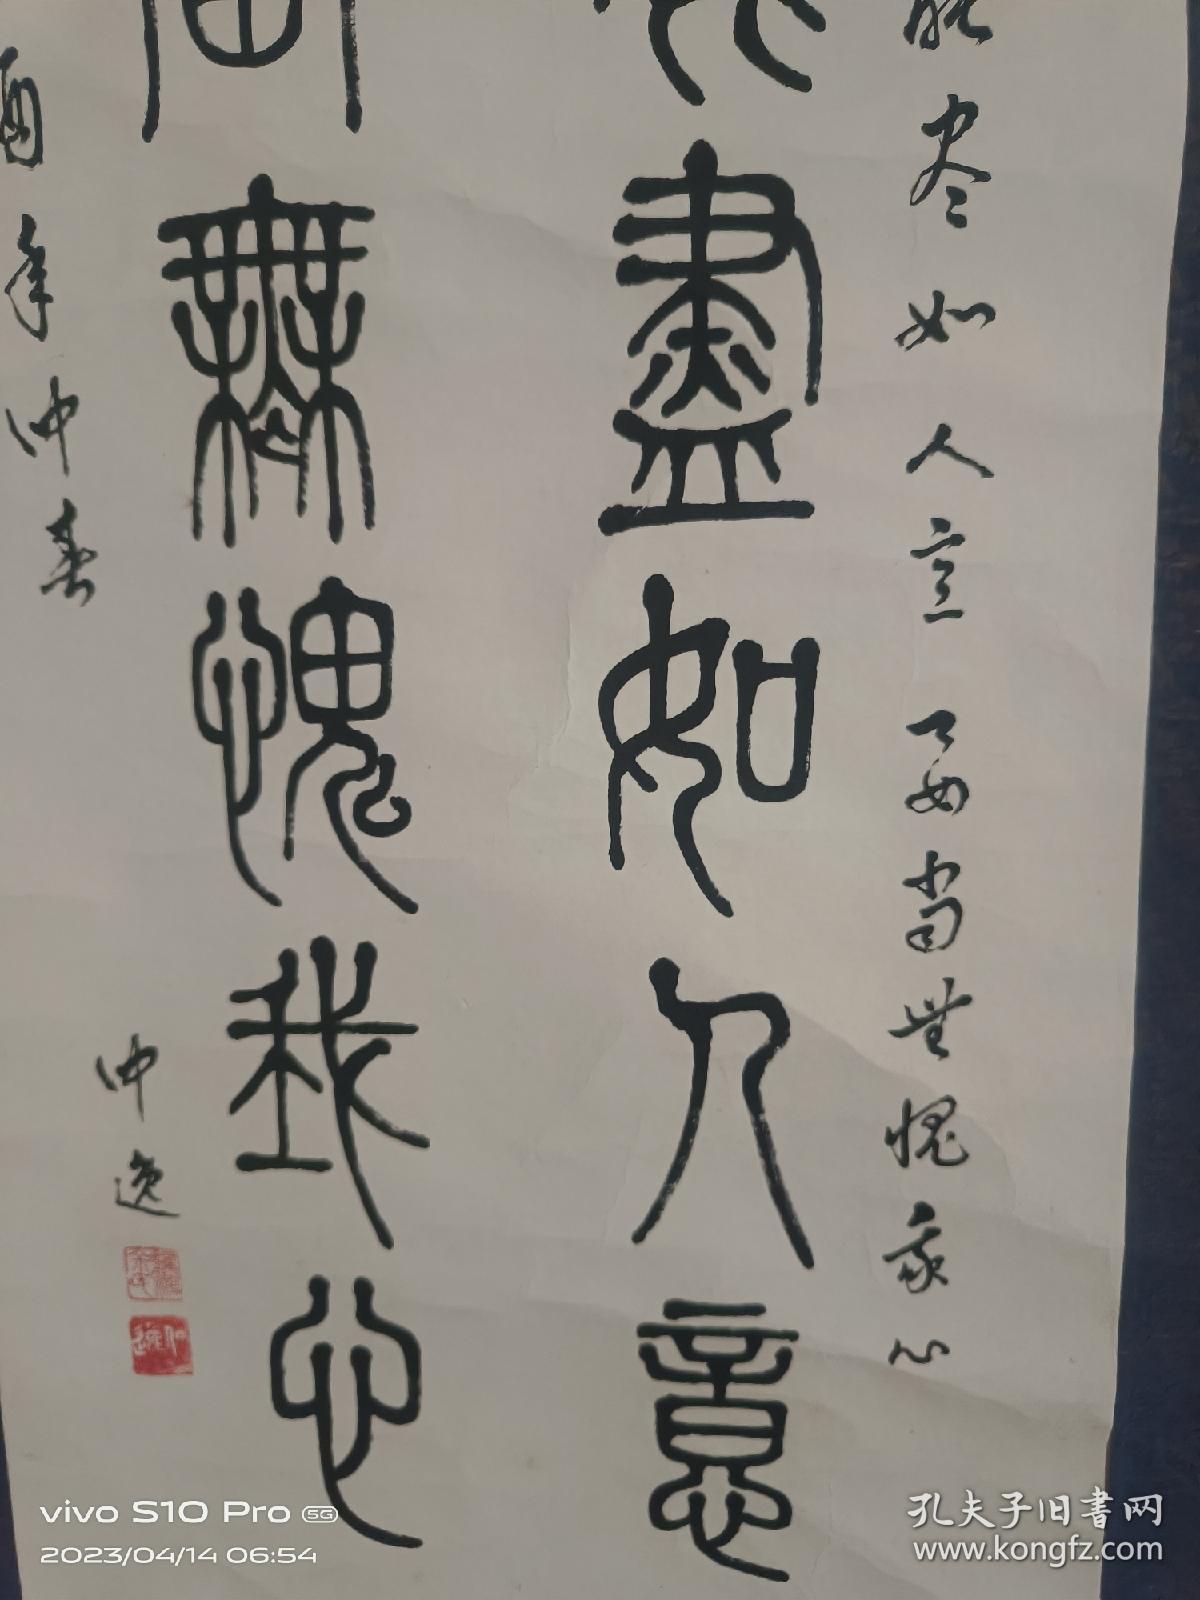 能尽如人意 区区当無愧我心
盡如人意
無愧我心
酉年仲春
仲逸
vivo S10 Pro 5G
2023/04/14 06:54
孔夫子旧书网
www.kongfz.com